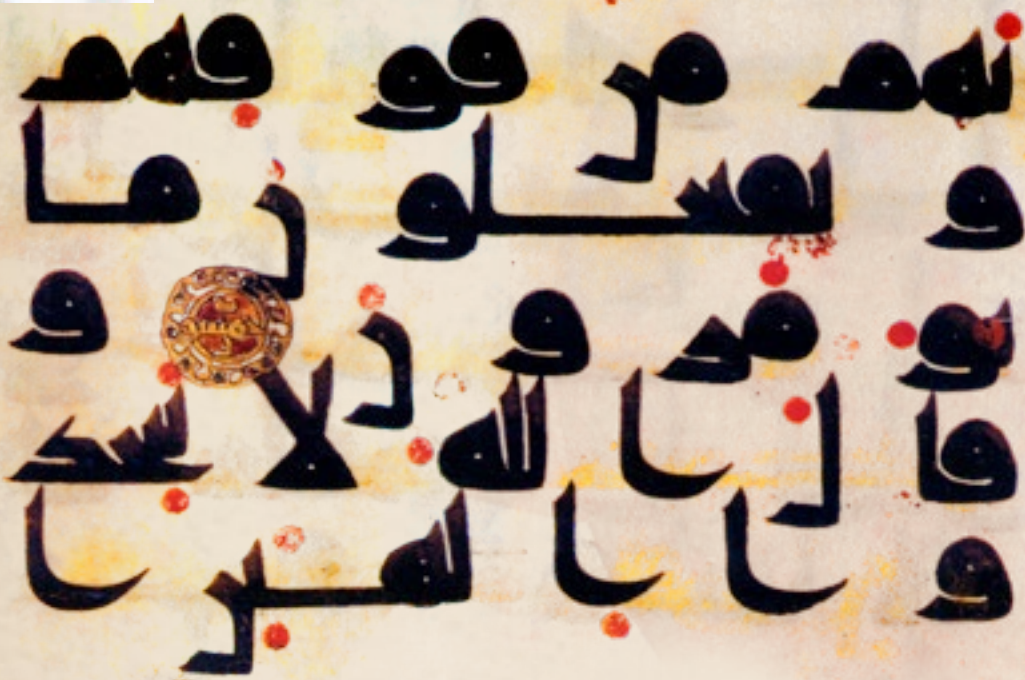 بهم من فوقهم
ويفعلون ما
يؤمرون و
قال الله لا تتخذ
وا الهين ا